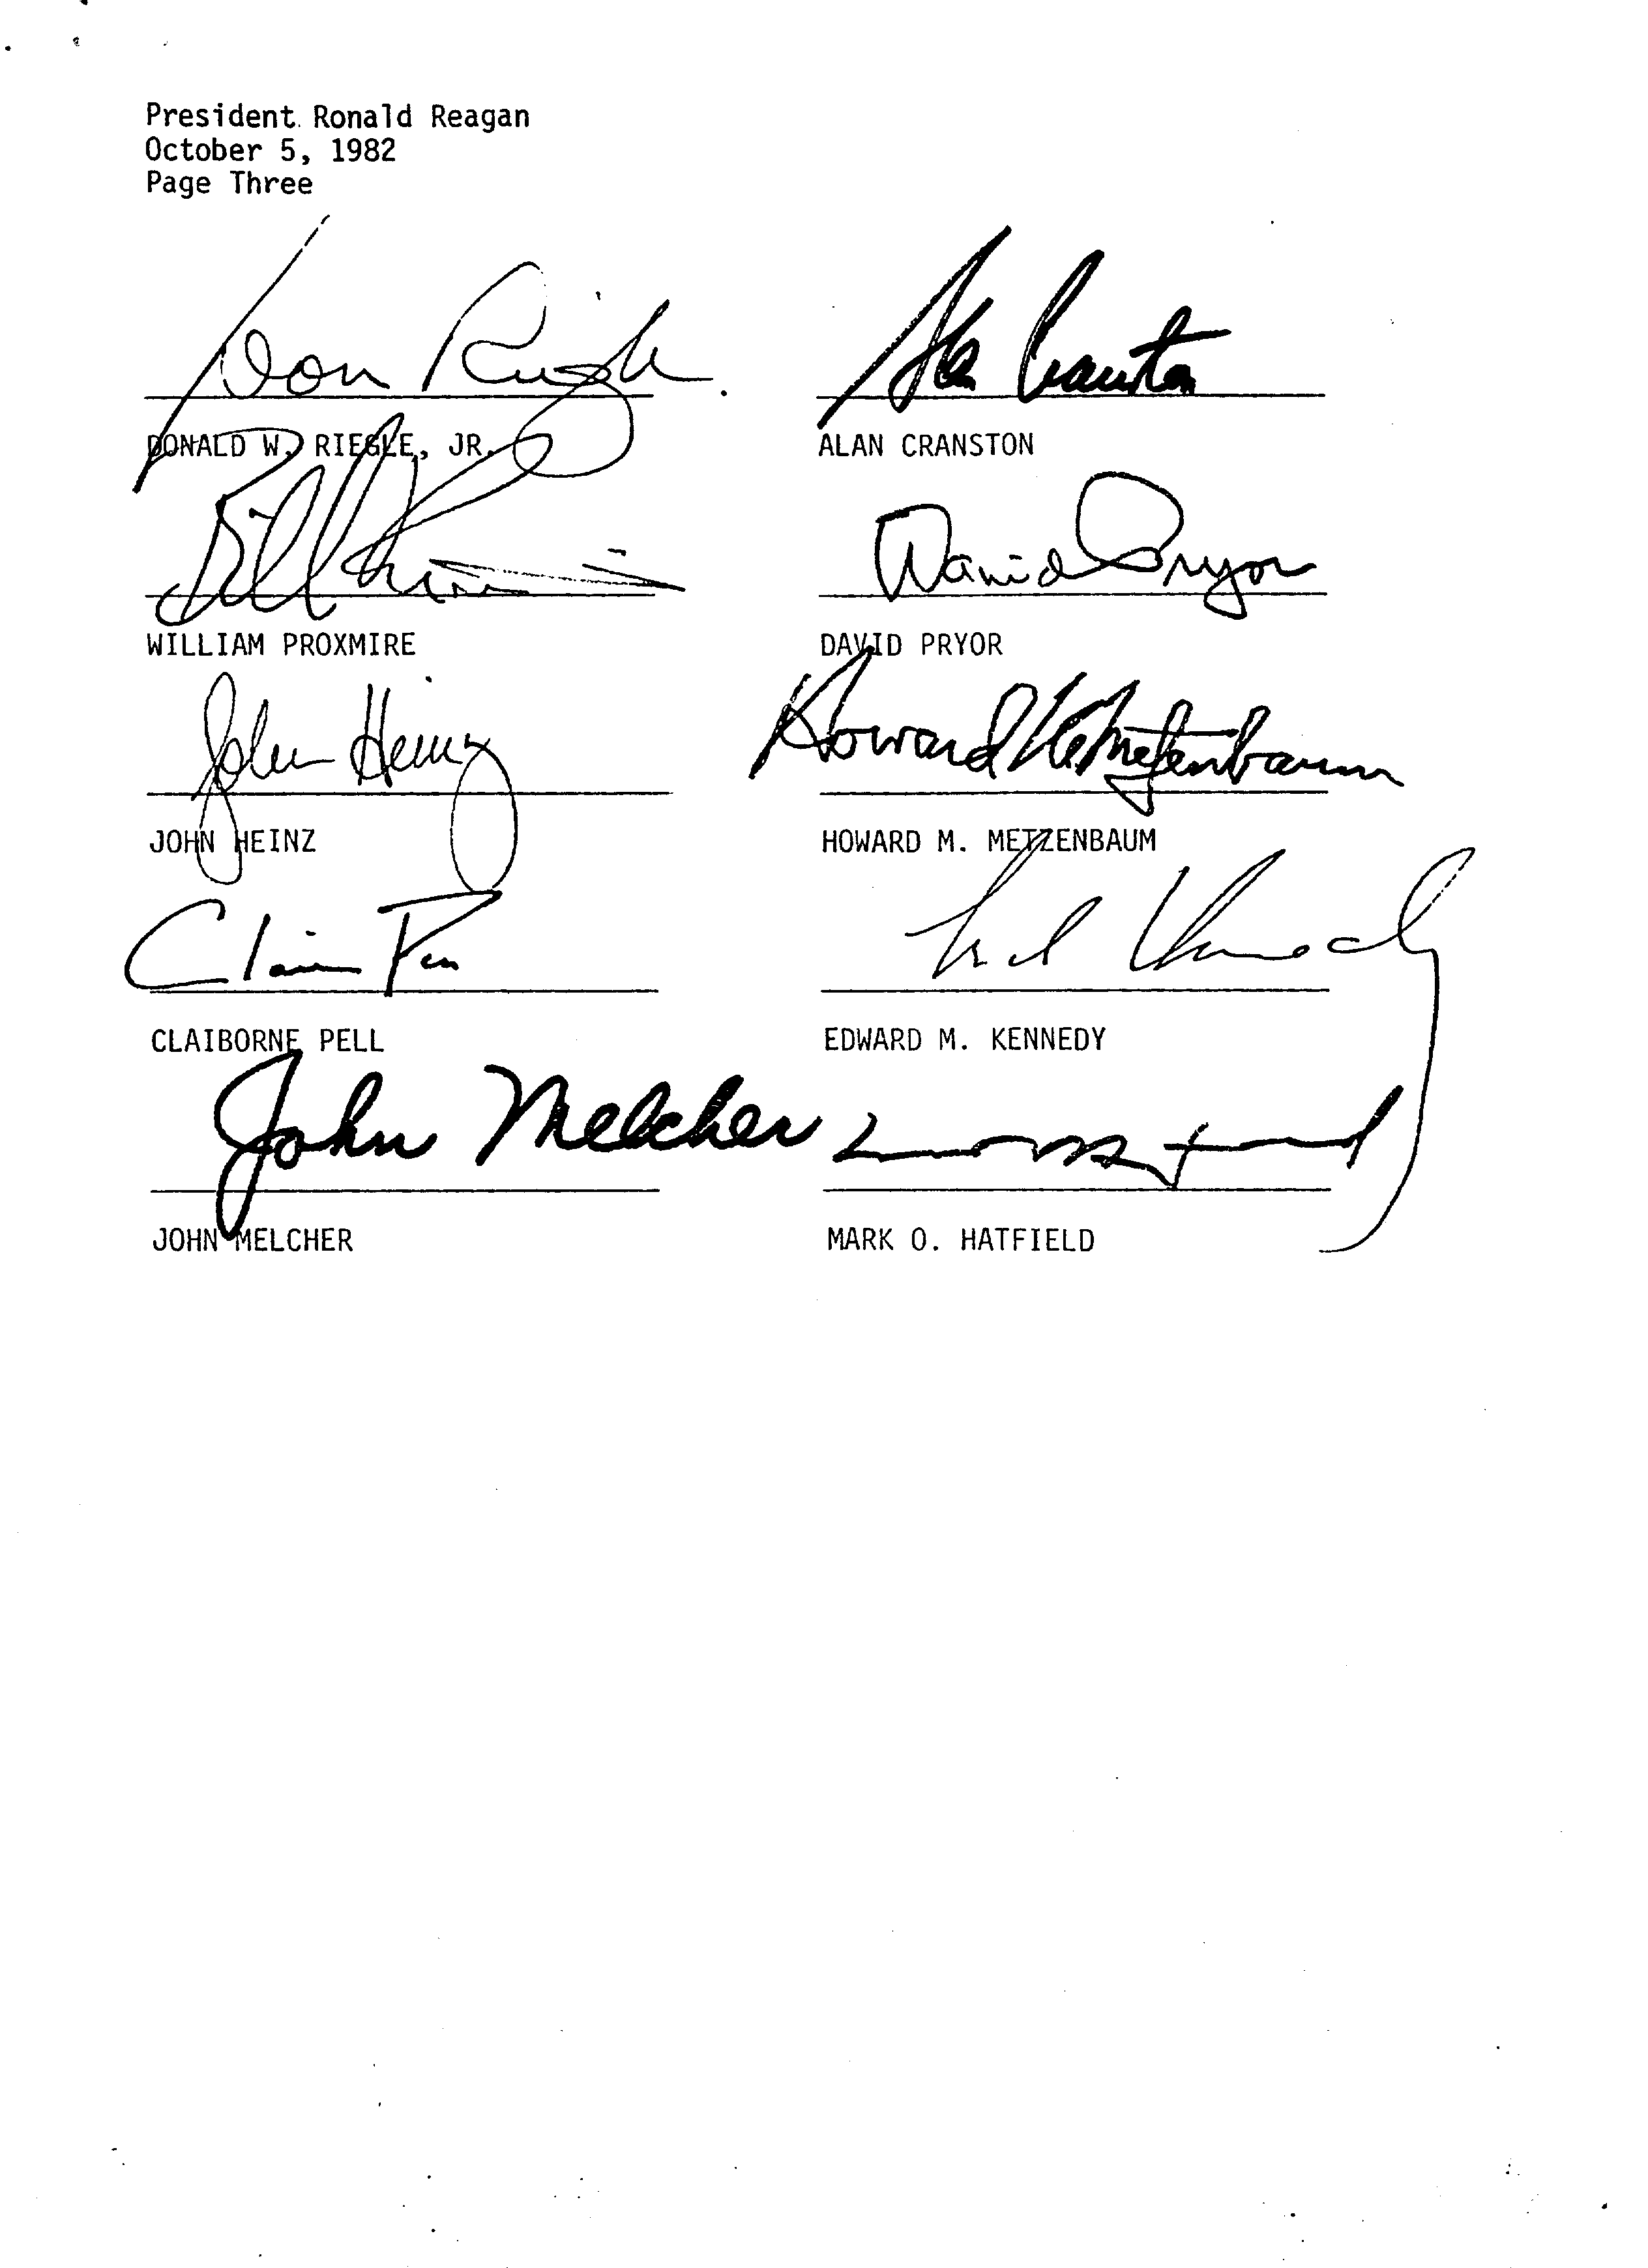 President Ronald Reagan
October 5, 1982
Page Three
Don Riegle Alan Cranston
DONALD W. RIEGLE, JR. ALAN CRANSTON
Bill David Pryor
WILLIAM PROXMIRE DAVID PRYOR
John Heinz Howard M. Metzenbaum
JOHN HEINZ HOWARD M. METZENBAUM
Claiborne Pell Ted Kennedy
CLAIBORNE PELL EDWARD M. KENNEDY
John Melcher
JOHN MELCHER MARK O. HATFIELD